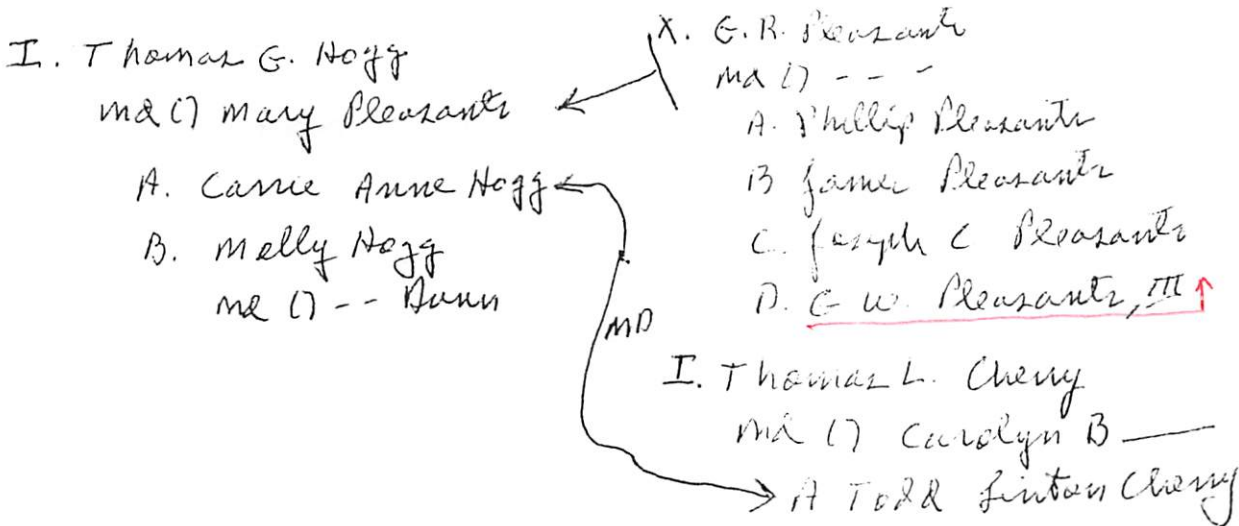 I. Thomas G. Hogg
md () Mary Pleasants
A. Carrie Anne Hogg
B. Molly Hogg
md () -- Dunn
X. G.R. Pleasants
md () - - -
A. Phillip Pleasants
B James Pleasants
C. Joseph C Pleasants
D. G W. Pleasants, III
MD
I. Thomas L. Cherry
md () Carolyn B
A Todd Linton Cherry